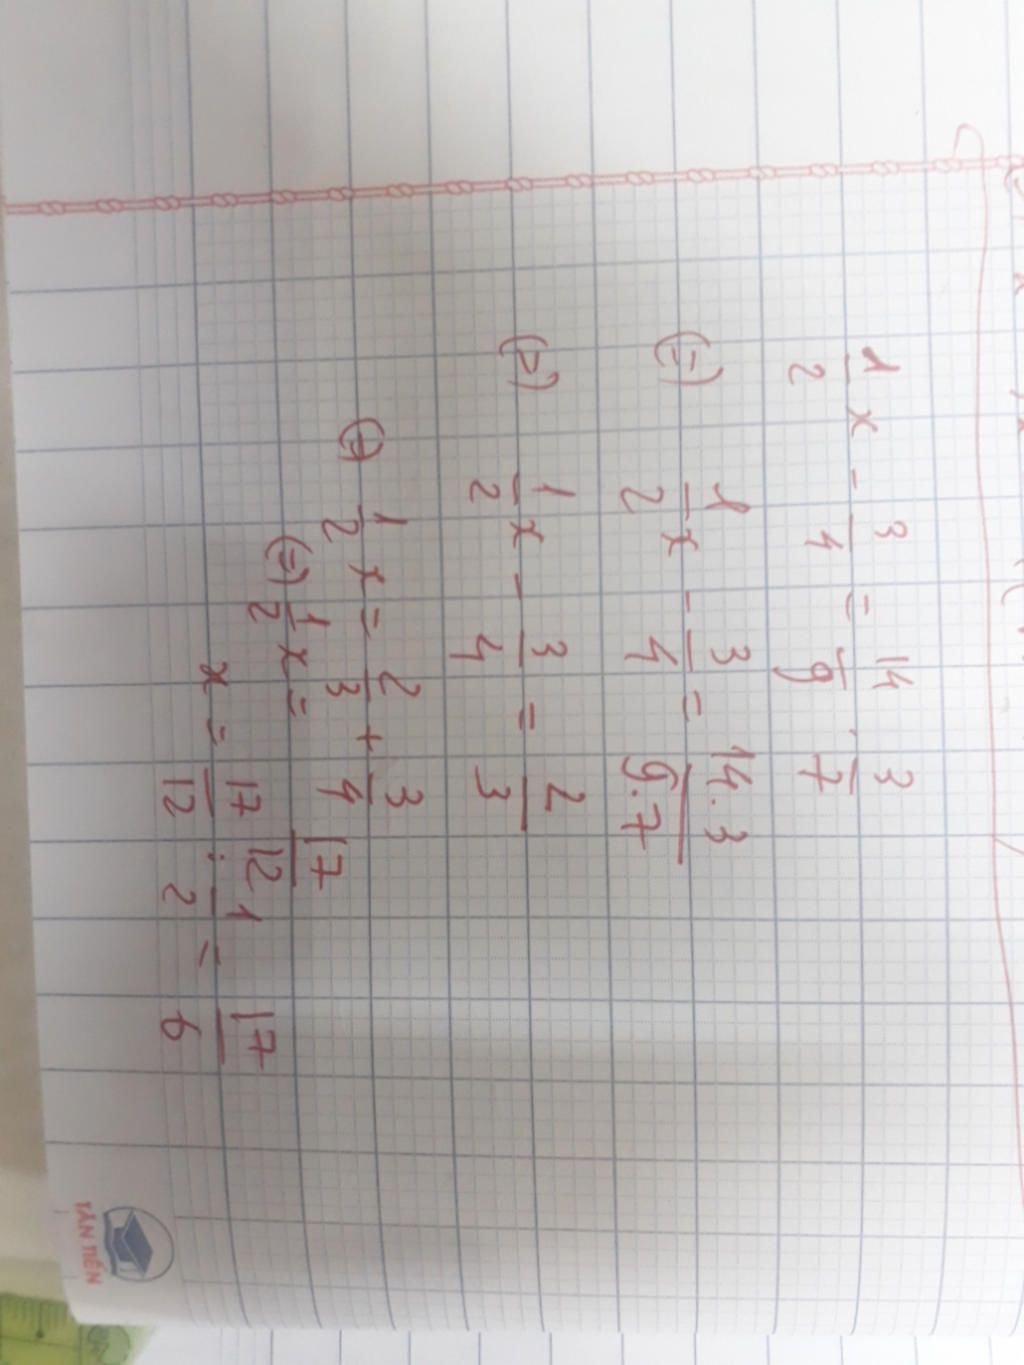 1/2 x - 3/4 = 14/9 . 3/7
(=) 1/2 x - 3/4 = 14.3/9.7
(=) 1/2 x - 3/4 = 2/3
(=) 1/2 x = 2/3 + 3/4
(=) 1/2 x = 17/12
x = 17/12 : 1/2 = 17/6
TÂN TIẾN